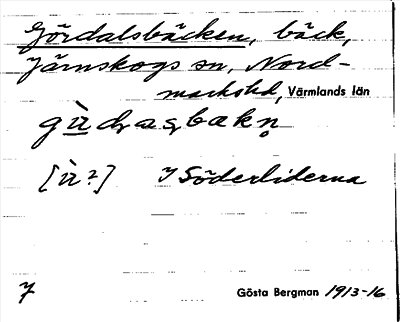 Gördalsbäcken, bäck,
Järnskogs sn, Nord-
markshd, Värmlands län
gùdasbakn̥
[ù?] I Söderliderna
7 Gösta Bergman 1913-16